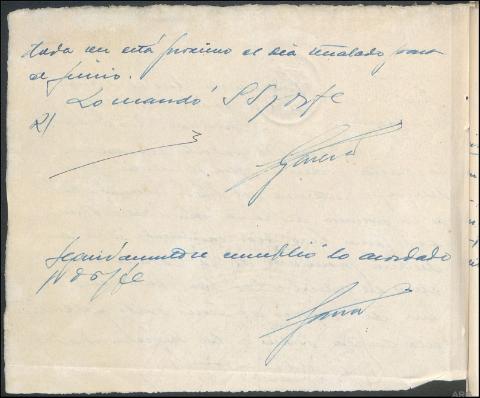 tada un está proximo el dia señalado para
el juicio.
Lo mandó S Sª y doy fe
Seguidamente cumplió lo acordado
y doy fe